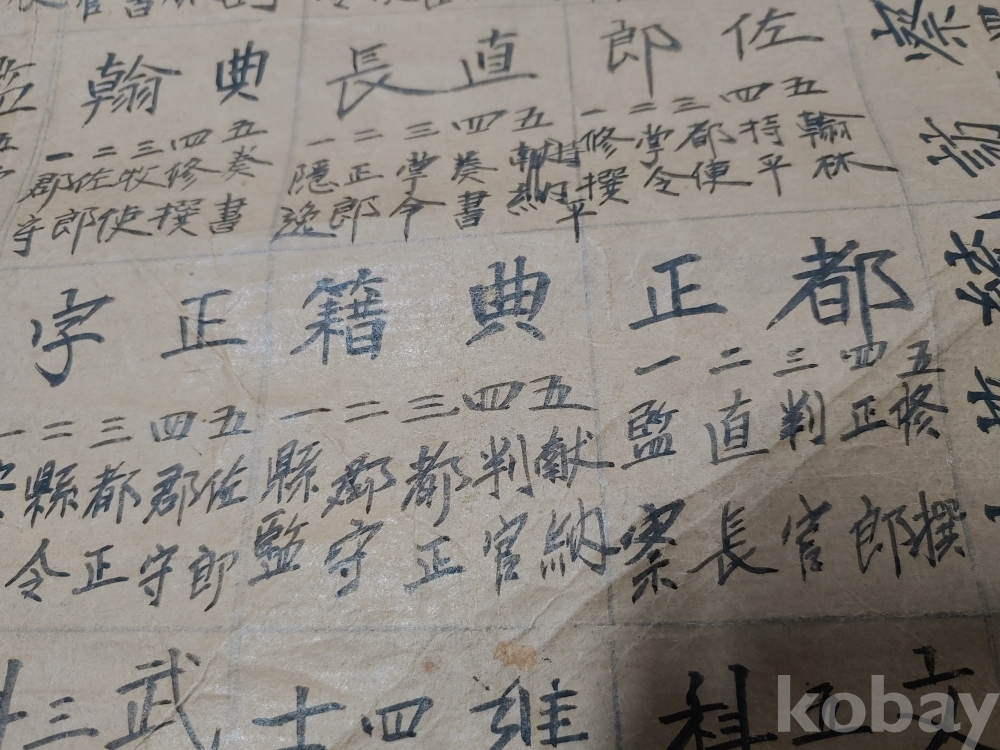 佐郎
一修撰
二掌令
三都使
四持平
五翰林
直長
一隱逸
二正郎
三掌令
四奏書
五持平
典翰
一郡守
二佐郎
三牧使
四修撰
五奏書
都正
一監察
二直長
三判官
四正郎
五修撰
典籍
一縣監
二郡守
三都正
四判官
五献納
正字
一
二縣令
三都正
四郡守
五佐郎
文五科
四士
武三
kobay